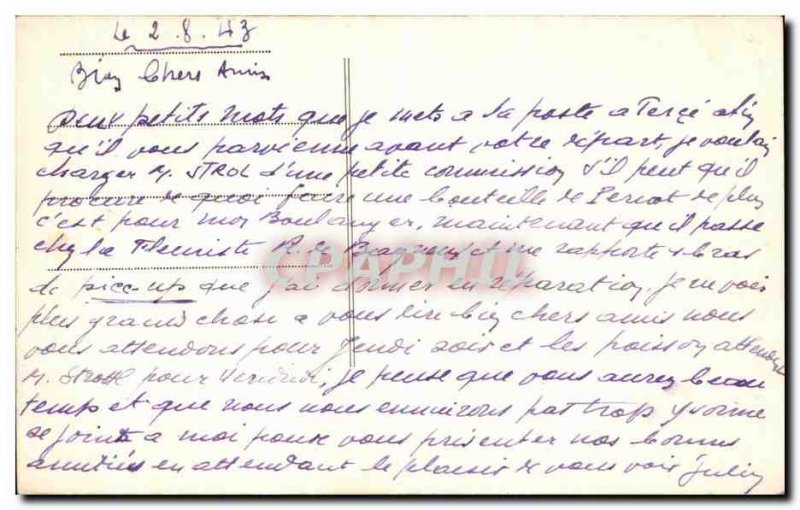 Le 2.8.43
Bien Chers Amis
Deux petits mots que je mets a la poste a Tercé afin
qu'il vous parvienne avant votre départ, je voulais
charger M. STROL d'une petite commission s'il peut qu'il
procure de quoi faire une bouteille de Pernot de plus
c'est pour mon Boulanger, maintenant qu'il passe
chez la Fleuriste R. de et me rapporte le bras
de picc-up que j'ai donner en réparation, je ne vois
plus grand chose a vous dire bien chers amis nous
vous attendons pour Jeudi soir et les poisson attendent
M. Stroll pour Vendredi, je pense que vous aurez beau
temps et que nous nous ennuirons pas trop Yvonne
se joint a moi pour vous présenter nos bonnes
amitiés en attendant le plaisir de vous voir Julien
CPAPHIL